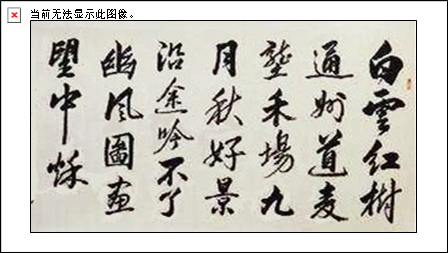 当前无法显示此图像。
白雲紅樹
通州道麦
壟禾場九
月秋好景
沿途吟不了
幽風圖畫
望中